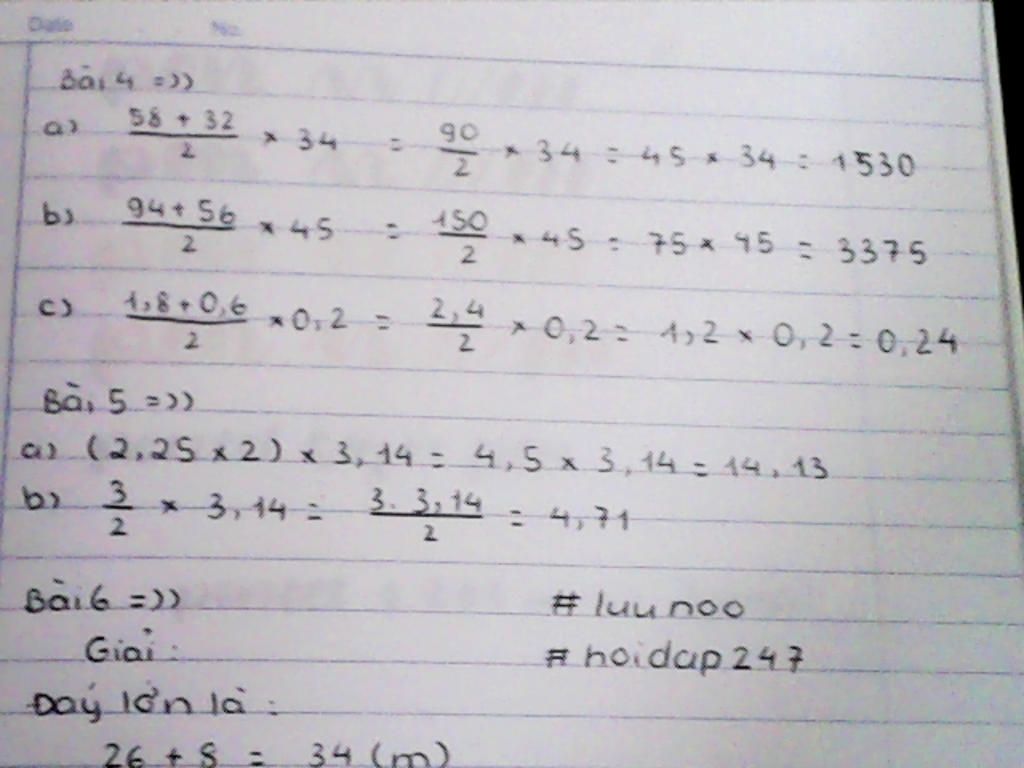 Date No.
Bài 4 =))
a) \frac{58 + 32}{2} × 34 = \frac{90}{2} × 34 = 45 × 34 = 1530
b) \frac{94 + 56}{2} × 45 = \frac{150}{2} × 45 = 75 × 45 = 3375
c) \frac{1,8 + 0,6}{2} × 0,2 = \frac{2,4}{2} × 0,2 = 1,2 × 0,2 = 0,24
Bài 5 =))
a) (2,25 × 2) × 3,14 = 4,5 × 3,14 = 14,13
b) \frac{3}{2} × 3,14 = \frac{3.3,14}{2} = 4,71
Bài 6 =)) # luunoo
Giải : # hoidap247
Đáy lớn là :
26 + 8 = 34 (m)